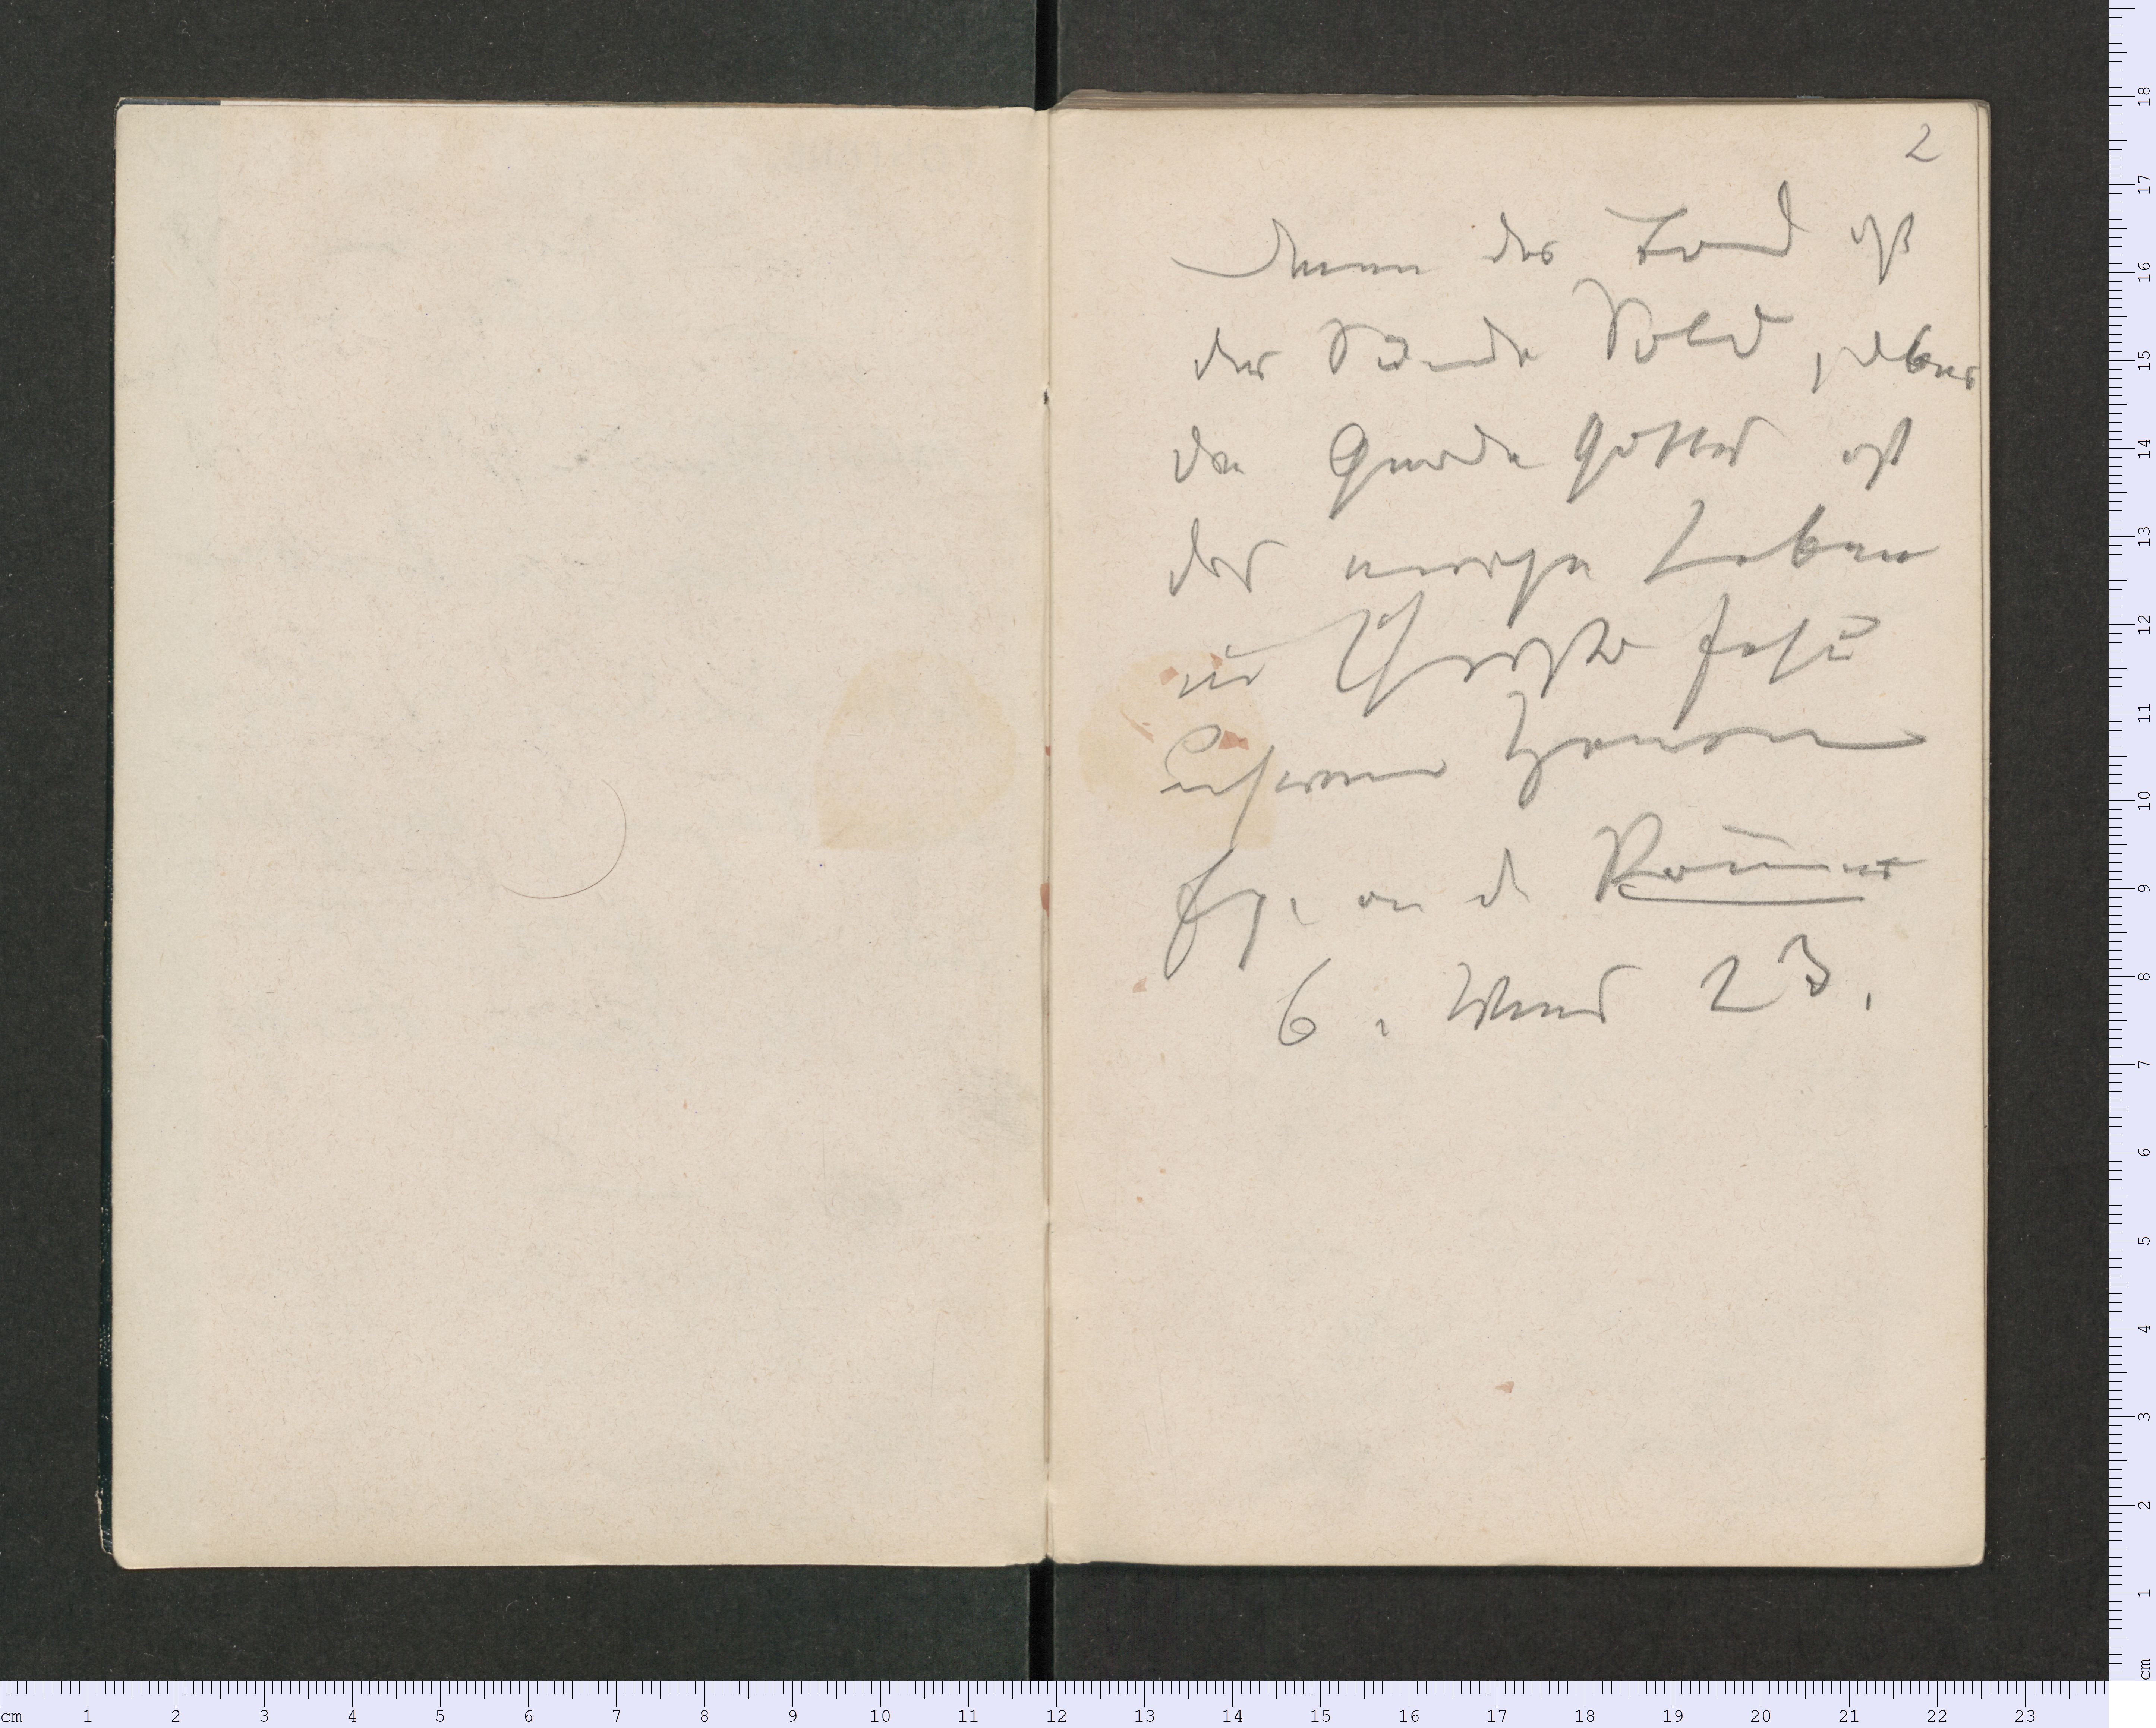 2
denn der Tod ist
der Sünde Sold, aber
die Gnade Gottes ist
das ewige Leben
in Christo Jesu
unserem Herren
Ep. an d. Römer
6. Vers 23.
cm 1 2 3 4 5 6 7 8 9 10 11 12 13 14 15 16 17 18 19 20 21 22 23
18
17
16
15
14
13
12
11
10
9
8
7
6
5
4
3
2
1
cm